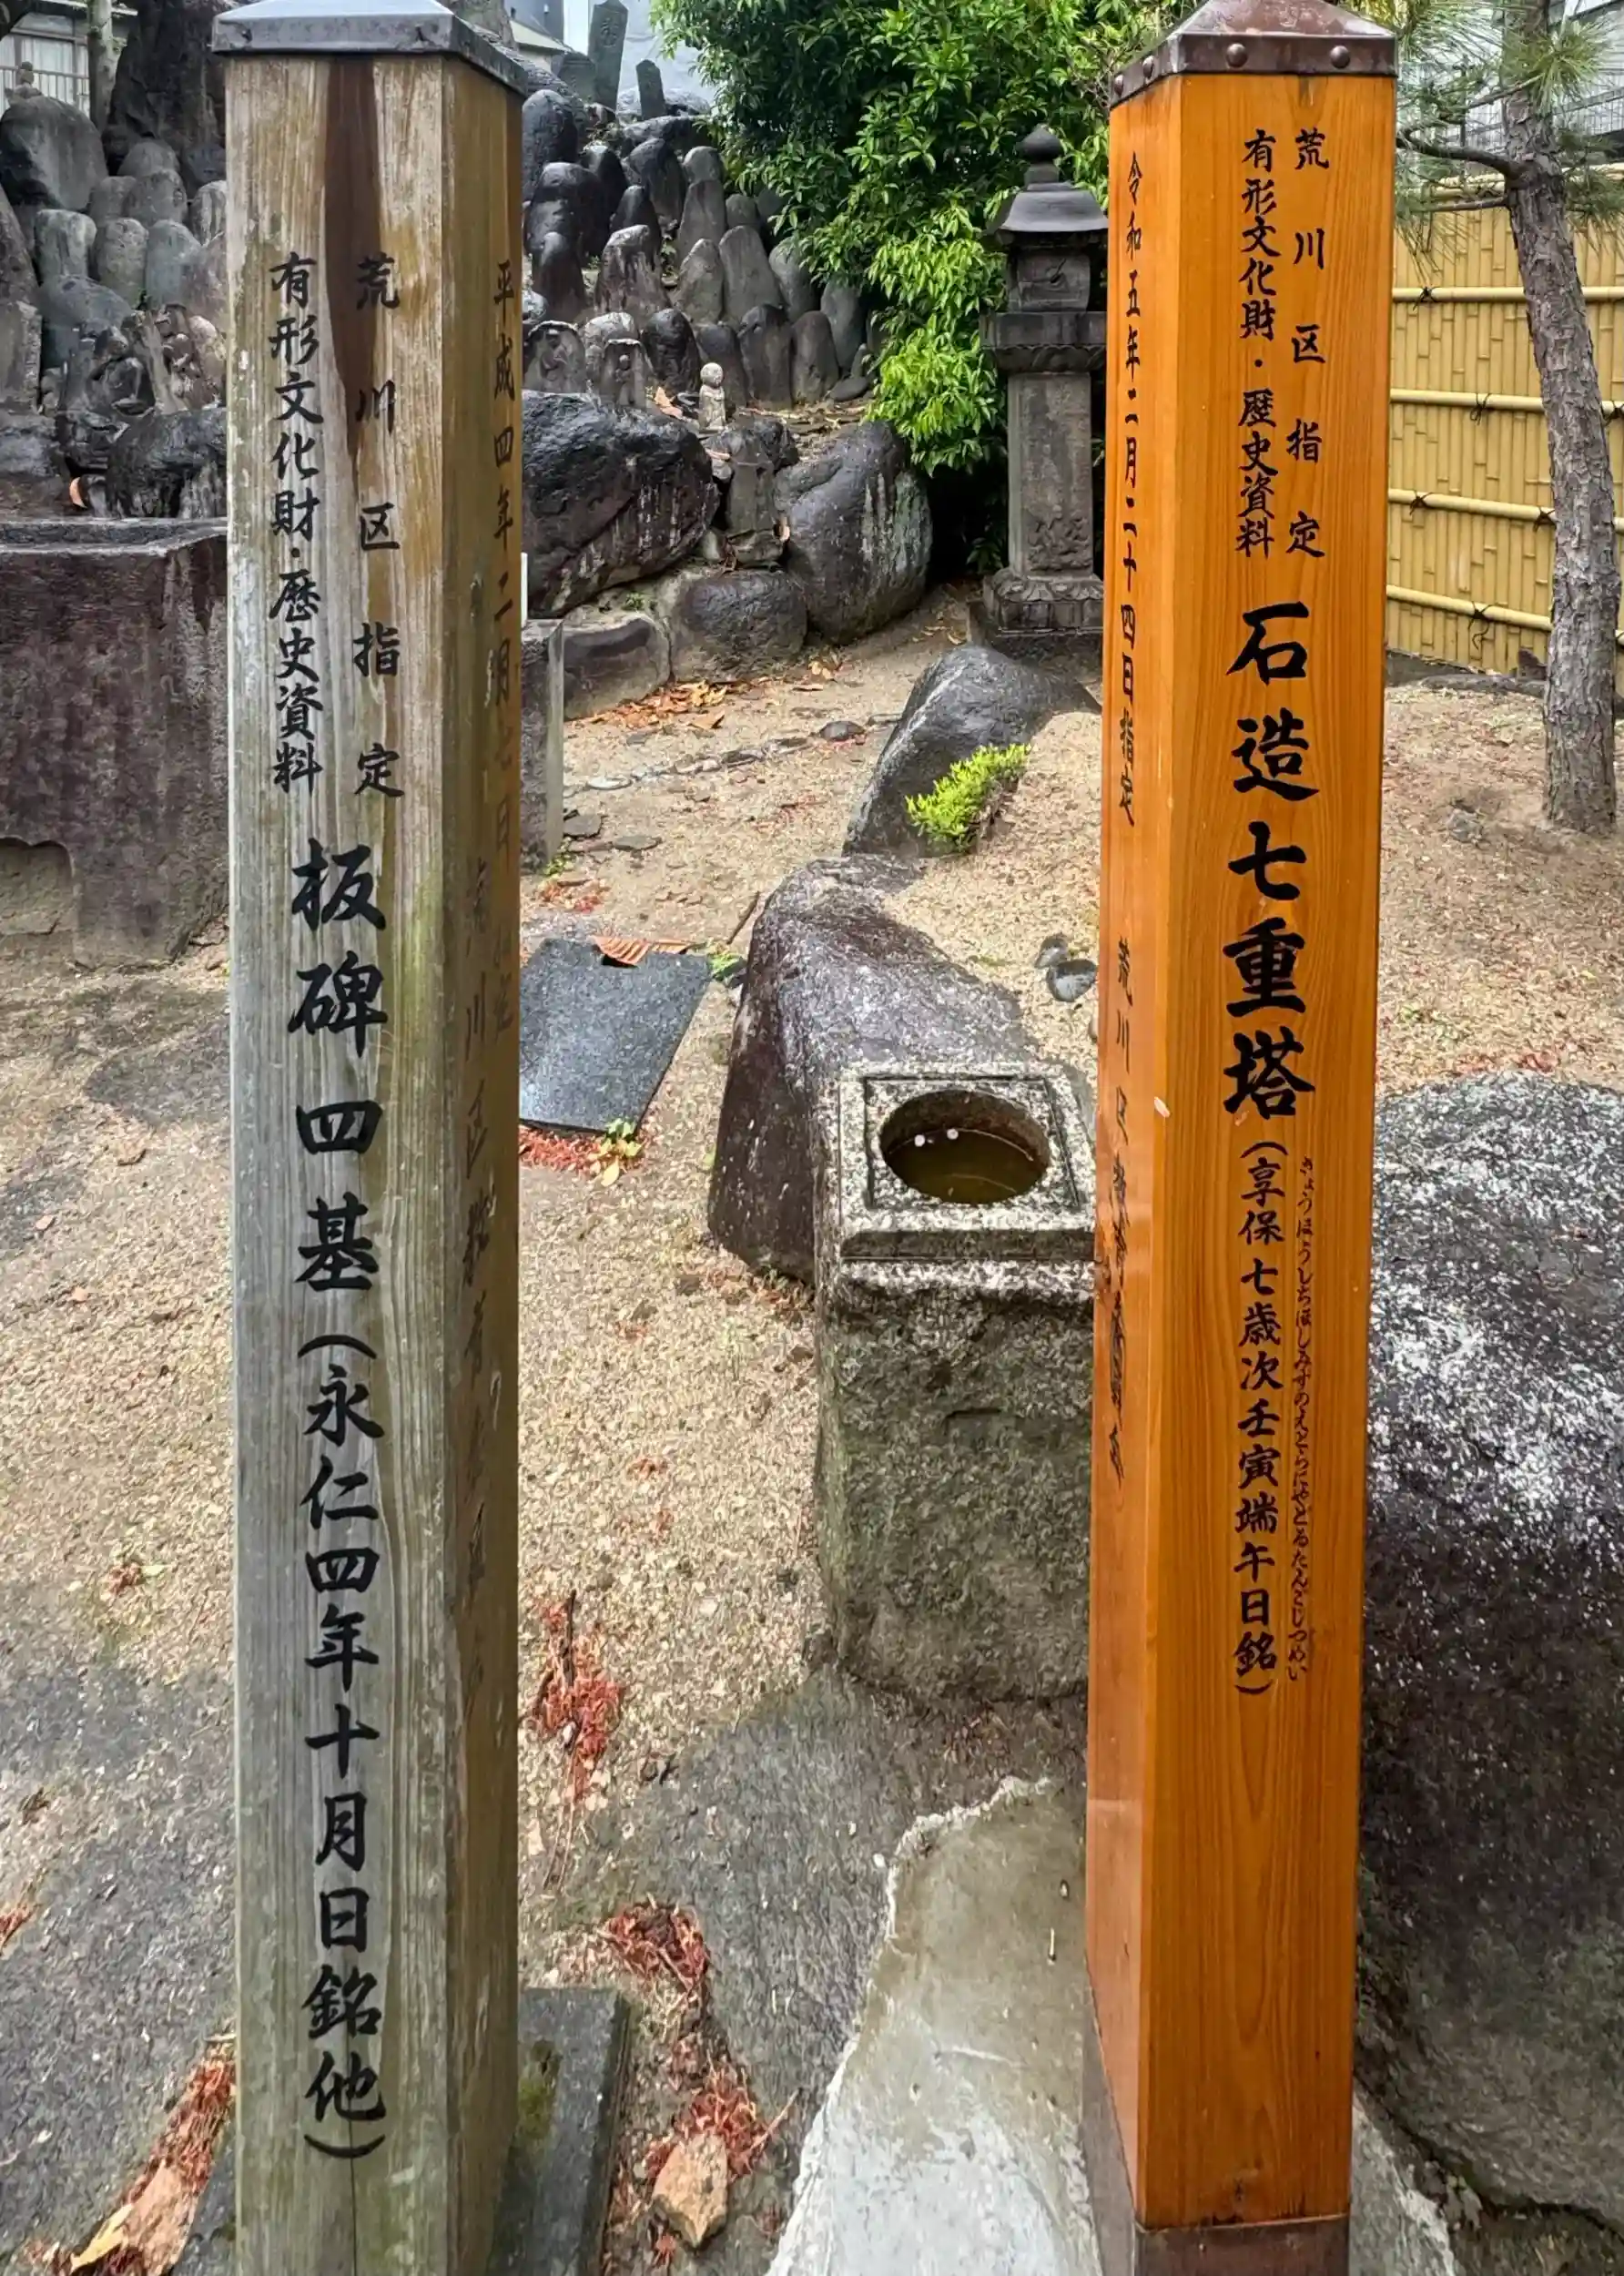 荒川区指定
有形文化財・歴史資料
板碑四基(永仁四年十月日銘他)
平成四年二月
荒川区
荒川区指定
有形文化財・歴史資料
石造七重塔(享保七歳次壬寅端午日銘)
きょうほうしちほしみずのえとらにやどるたんごじつめい
令和五年二月二十四日指定
荒川区教育委員会